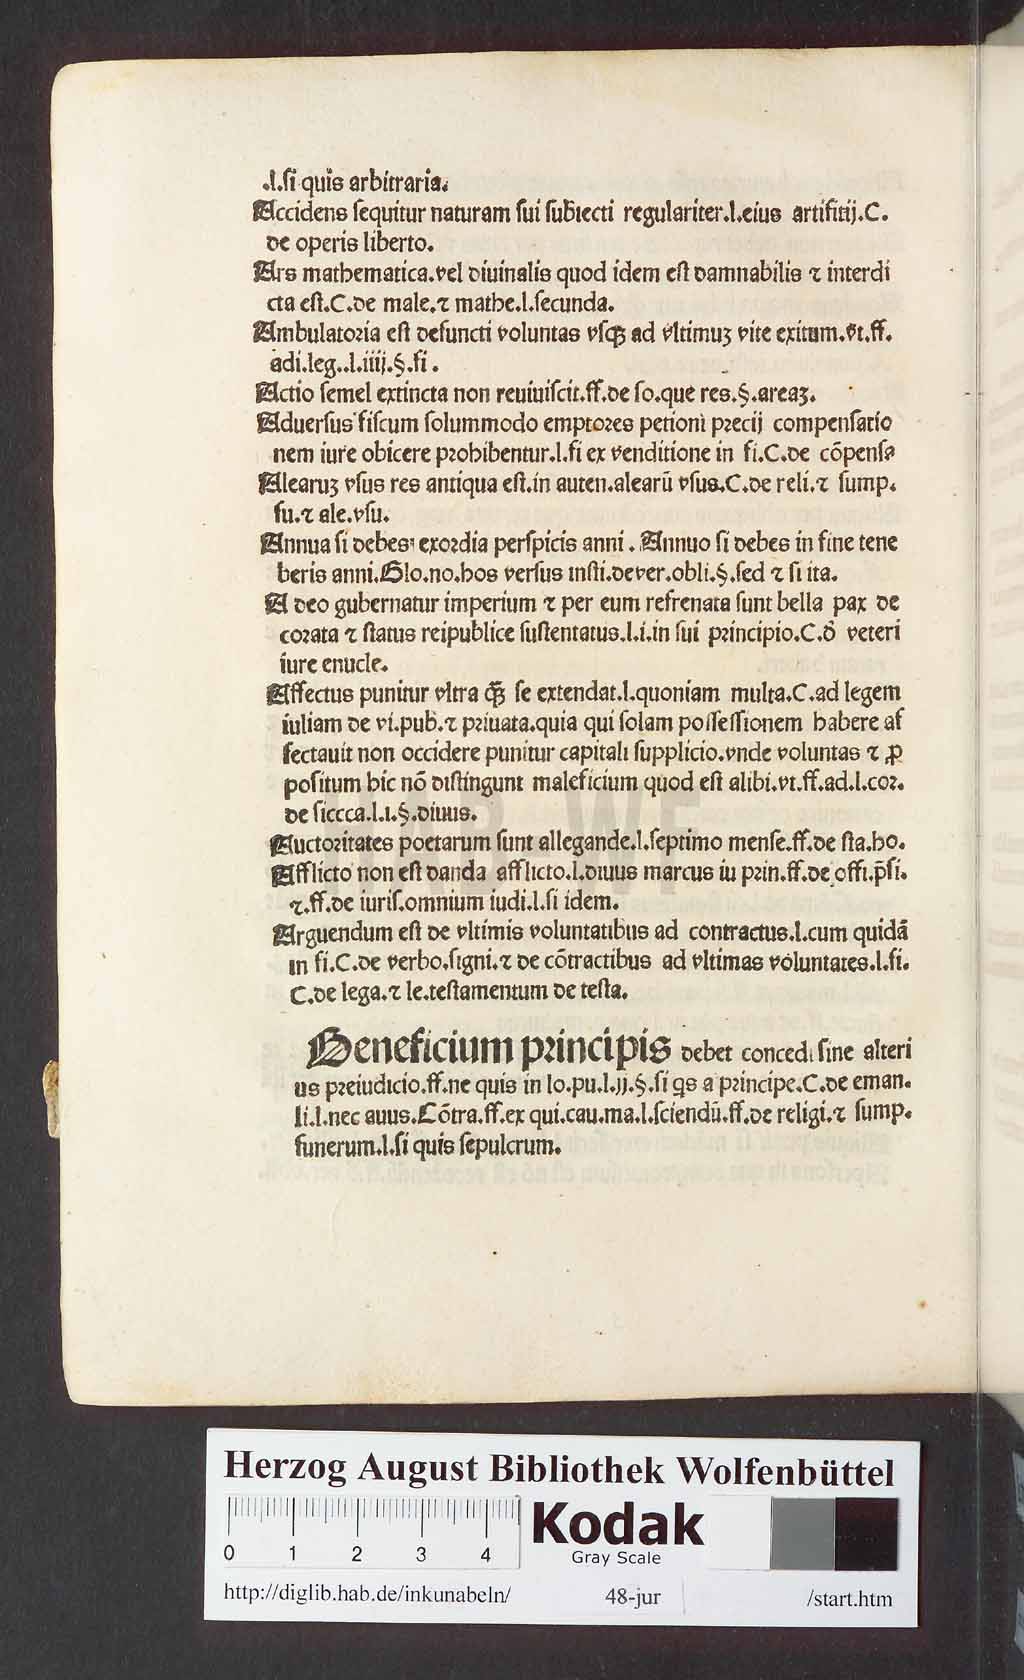 .l.ſi quis arbitraria.
Accidens ſequitur naturam ſui ſubiecti regulariter.l.eius artifitij.C.
de operis liberto.
Ars mathematica.vel diuinalis quod idem eſt damnabilis ⁊ interdi
cta eſt.C.de male.⁊ mathe.l.ſecunda.
Ambulatoria eſt defuncti voluntas vſqꝫ ad vltimuꝫ vite exitum.vt.ff.
adi.leg..l.iiij.§.fi.
Actio ſemel extincta non reuiuiſcit.ff.de ſo.que res.§.areaꝫ.
Aduerſus fiſcum ſolummodo emptores petioni precij compenſatio
nem iure obicere prohibentur.l.fi ex venditione in fi.C.de cōpenſa
Alearuꝫ vſus res antiqua eſt.in auten.alearū vſus.C.de reli.⁊ ſump.
fu.⁊ ale.vſu.
Annua ſi debes: exordia perſpicis anni. Annuo ſi debes in fine tene
beris anni.Glo.no.hos verſus inſti.de ver.obli.§.ſed ⁊ ſi ita.
A deo gubernatur imperium ⁊ per eum refrenata ſunt bella pax de
corata ⁊ ſtatus reipublice ſuſtentatus.l.i.in ſui principio.C.d̄ veteri
iure enucle.
Affectus punitur vltra qꝫ̄ ſe extendat.l.quoniam multa.C.ad legem
iuliam de vi.pub.⁊ priuata.quia qui ſolam poſſeſſionem habere af
fectauit non occidere punitur capitali ſupplicio.vnde voluntas ⁊ ꝓ
poſitum hic nō diſtingunt maleficium quod eſt alibi.vt.ff.ad.l.cor.
de ſiccca.l.i.§.diuus.
Auctoritates poetarum ſunt allegande.l.ſeptimo menſe.ff.de ſta.ho.
Afflicto non eſt danda afflicto.l.diuus marcus iu prin.ff.de offi.p̄ſi.
⁊.ff.de iuriſ.omnium iudi.l.ſi idem.
Arguendum eſt de vltimis voluntatibus ad contractus.l.cum quidā
in fi.C.de verbo.ſigni.⁊ de cōtractibus ad vltimas voluntates.l.fi.
C.de lega.⁊ le.teſtamentum de teſta.
Beneficium principis debet concedi ſine alteri
us preiudicio.ff.ne quis in lo.pu.l.ij.§.ſi qs a principe.C.de eman.
li.l.nec auus.Cōtra.ff.ex qui.cau.ma.l.ſciendū.ff.de religi.⁊ ſump.
funerum.l.ſi quis ſepulcrum.
HAB-WF
Herzog August Bibliothek Wolfenbüttel
0 1 2 3 4
Kodak
Gray Scale
http://diglib.hab.de/inkunabeln/ 48-jur /start.htm